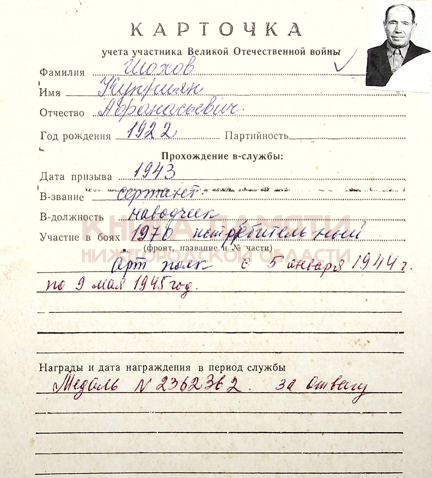 КАРТОЧКА
учета участника Великой Отечественной войны
Фамилия Шохов
Имя Куприян
Отчество Афонасьевич.
Год рождения 1922 Партийность
Прохождение в-службы:
Дата призыва 1943
В-звание сержант
В-должность наводчик
КНИГА ПАМЯТИ
Участие в боях 1976 истребительный
(фронт, название и № части)
НИЖЕГОРОДСКОЙ ОБЛАСТИ
Арт полк с 5 января 1944 г.
по 9 мая 1945 год.
Награды и дата награждения в период службы
Медаль N 2362362. за отвагу